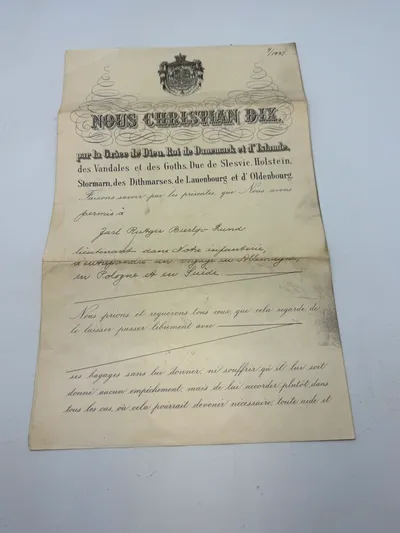 NOUS CHRISTIAN DIX,
par la Grâce de Dieu, Roi de Danemark et d'Islande,
des Vandales et des Goths, Duc de Slesvic, Holstein,
Stormarn, des Dithmarses, de Lauenbourg et d'Oldenbourg.
Faisons savoir par les présentes, que Nous avons
permis à
Jarl Rutger
lieutenant dans Notre infanterie,
d'entreprendre un voyage en Allemagne,
en Pologne et en Suède
Nous prions et requerons tous ceux, que cela regarde, de
le laisser passer librement avec
ses bagages sans lui donner, ne souffrir qu'il lui soit
donné aucun empêchement, mais de lui accorder plutôt, dans
tous les cas, où cela pourrait devenir nécessaire, toute aide et